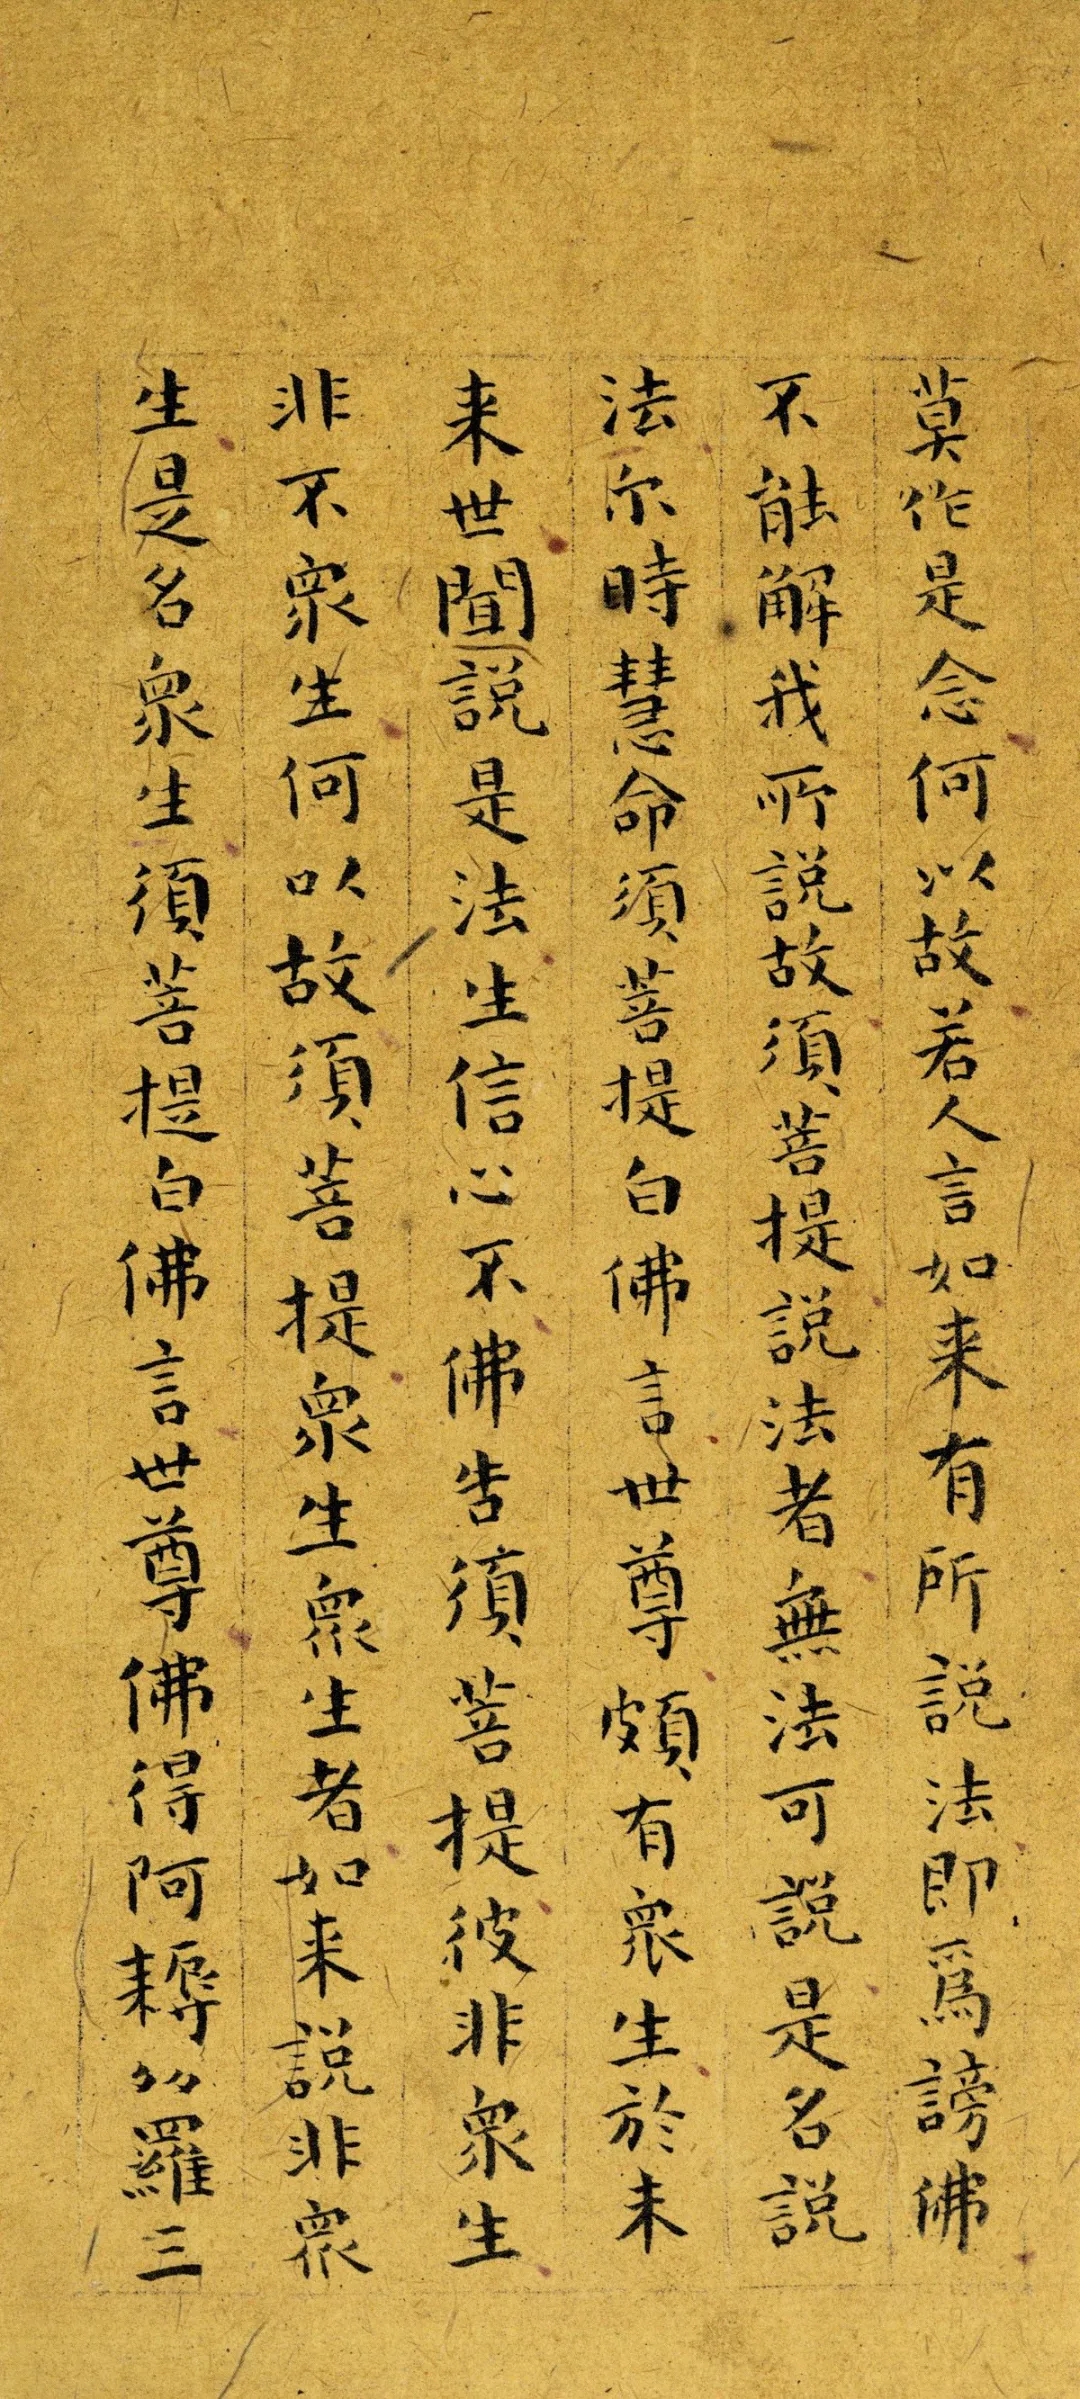 莫作是念何以故若人言如来有所說法即爲謗佛
不能解我所說故須菩提說法者無法可說是名說
法尒時慧命須菩提白佛言世尊頗有衆生於未
来世聞說是法生信心不佛告須菩提彼非衆生
非不衆生何以故須菩提衆生衆生者如来說非衆
生是名衆生須菩提白佛言世尊佛得阿耨多羅三